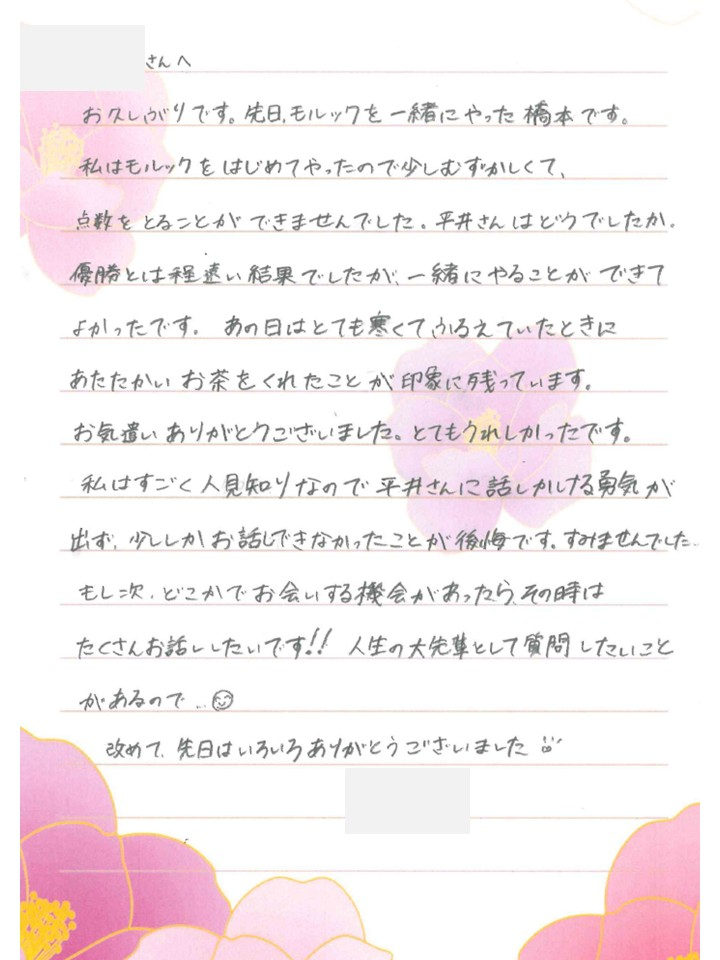 さんへ
お久しぶりです。先日、モルックを一緒にやった橋本です。
私はモルックをはじめてやったので少しむずかしくて、
点数をとることができませんでした。平井さんはどうでしたか。
優勝とは程遠い結果でしたが、一緒にやることができて
よかったです。 あの日はとても寒くてふるえていたときに
あたたかいお茶をくれたことが印象に残っています。
お気遣いありがとうございました。とてもうれしかったです。
私はすごく人見知りなので平井さんに話しかける勇気が
出ず、少ししかお話しできなかったことが後悔です。すみませんでした…
もし次、どこかでお会いする機会があったら、その時は
たくさんお話ししたいです!! 人生の大先輩として質問したいこと
があるので…
改めて、先日はいろいろありがとうございました